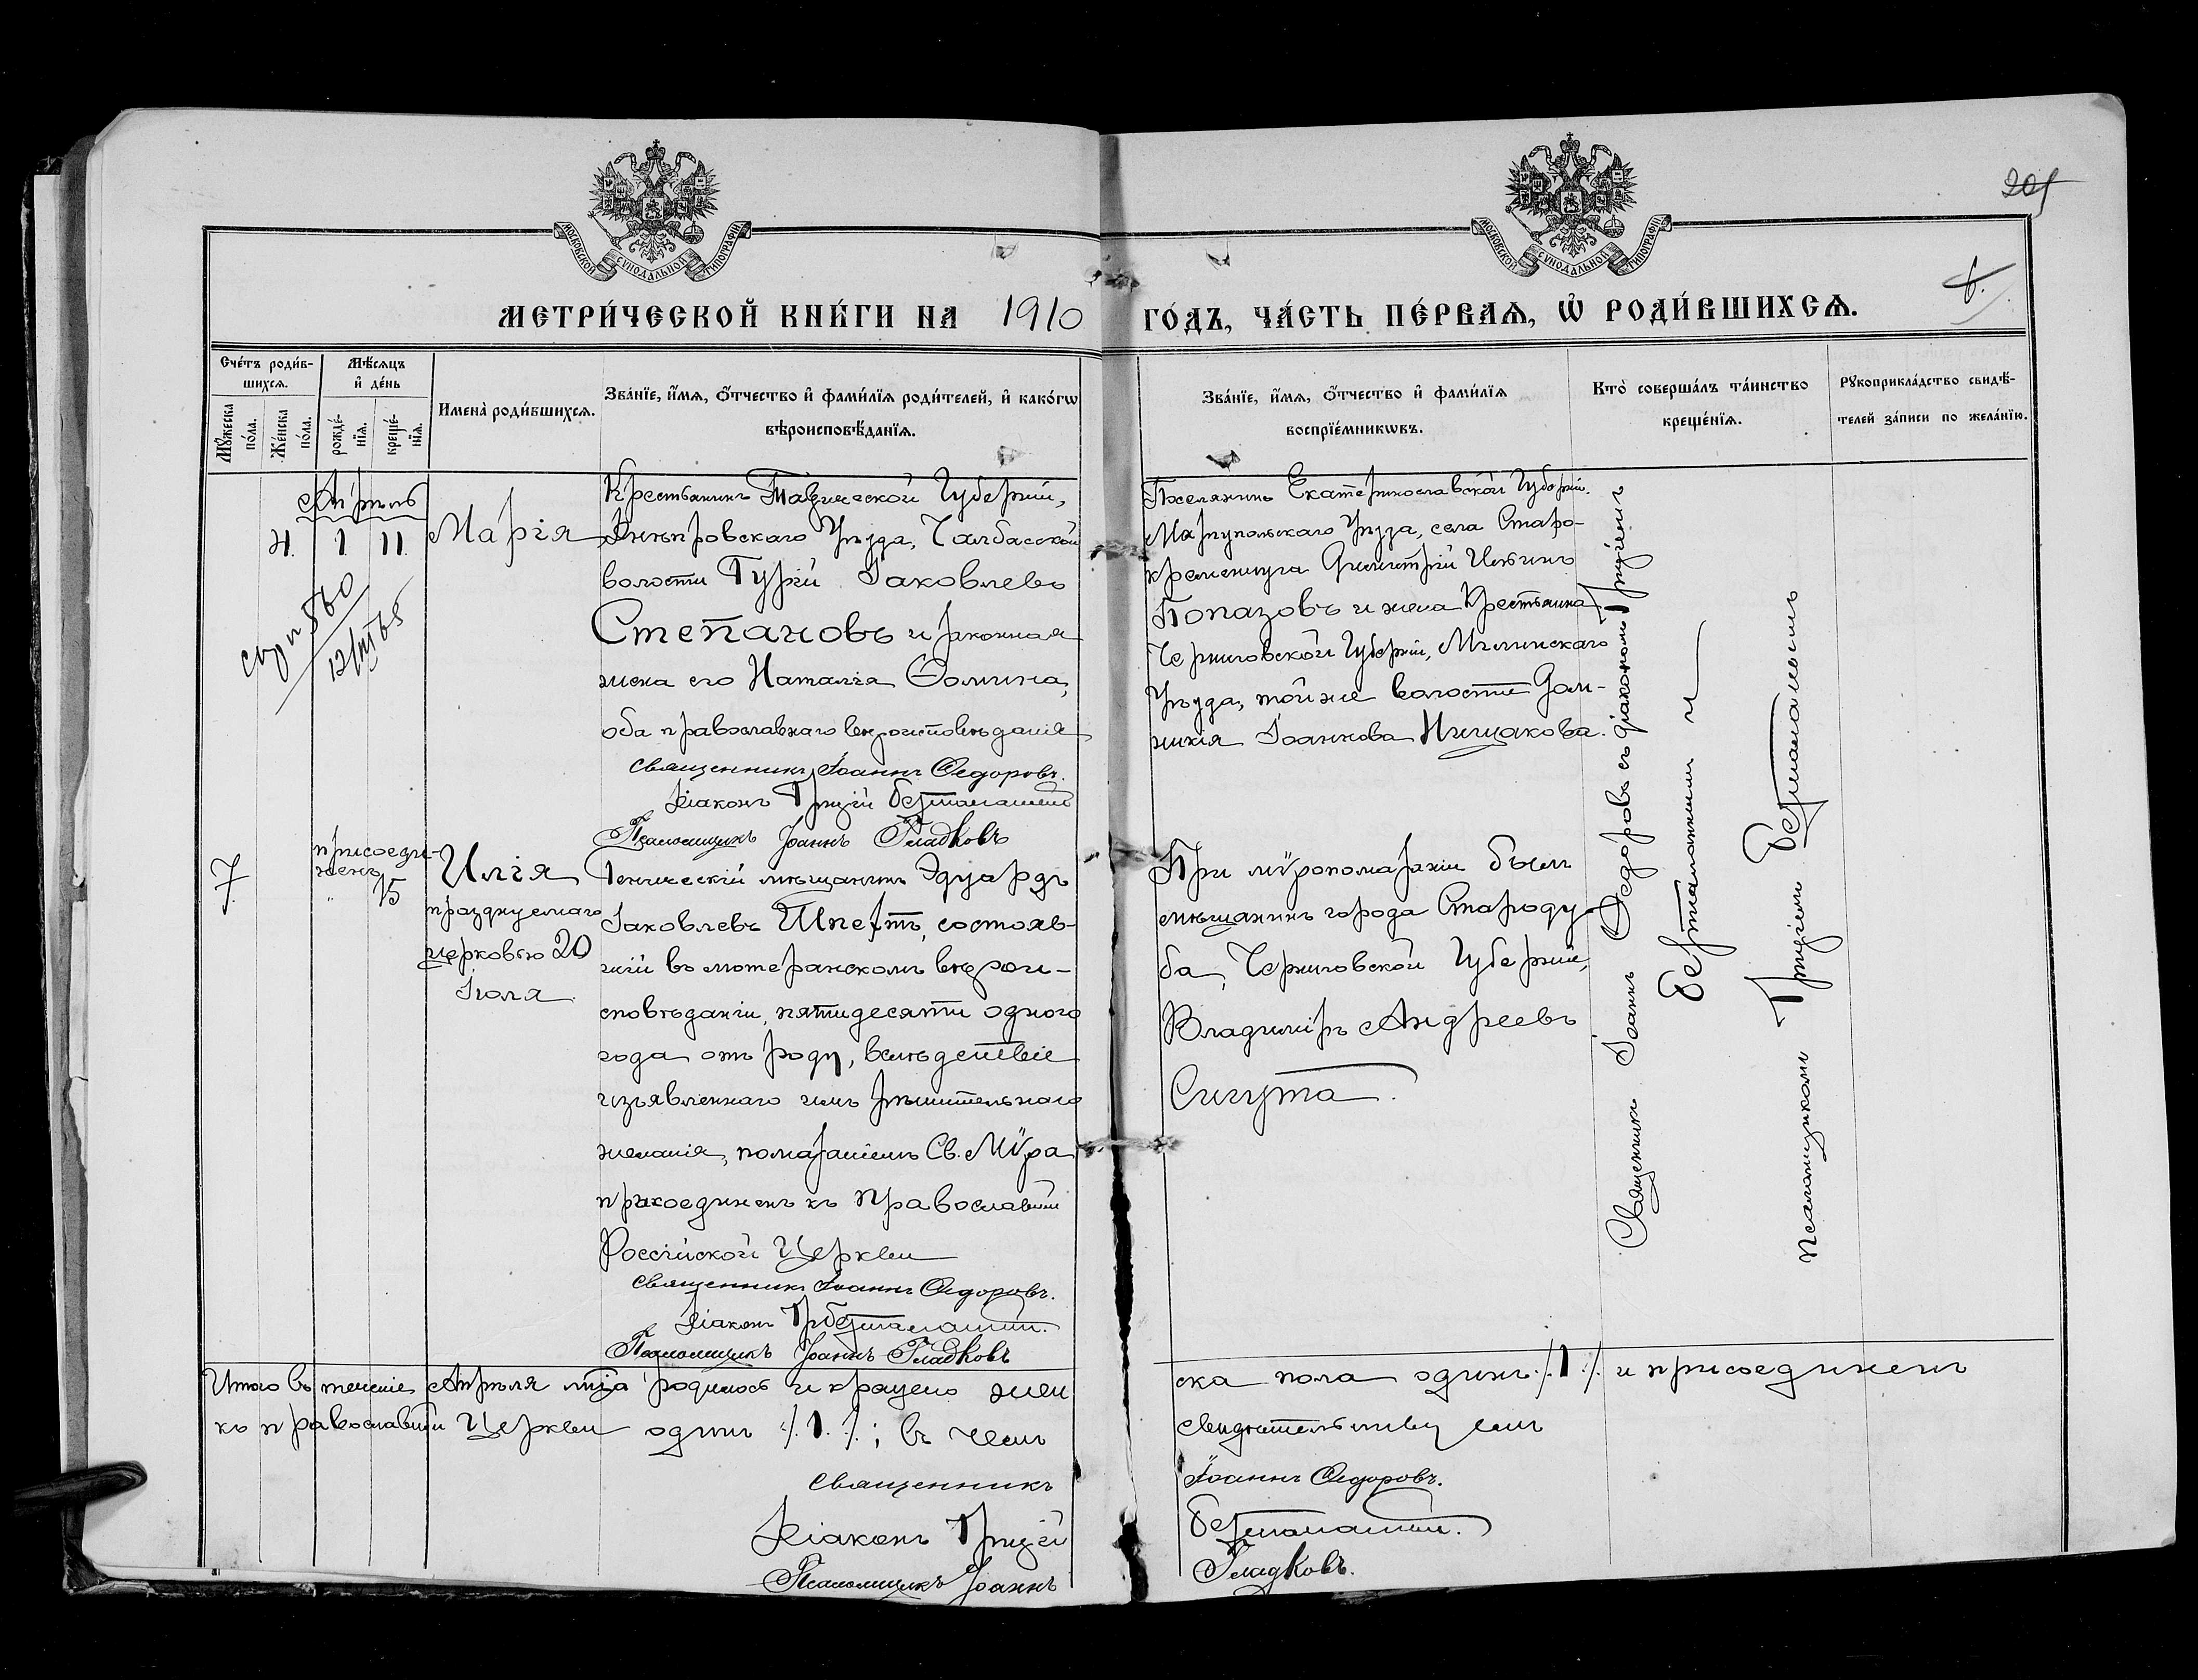 201
МОСКОВСКОЙ СѴНОДАЛЬНОЙ ТИПОГРАФІИ
МОСКОВСКОЙ СѴНОДАЛЬНОЙ ТИПОГРАФІИ
МЕТРИ́ЧЕСКОЙ КНИ́ГИ НА 1910 ГО́ДЪ, ЧА́СТЬ ПЕ́РВАѦ, Ѡ҆ РОДИ́ВШИХСѦ.
Сче́тъ роди́вшихсѧ.
Мѹ́жеска по́ла.
Же́нска по́ла.
Мѣ́сѧцъ и҆ де́нь
рожде́нїѧ.
креще́нїѧ.
Имена̀ роди́вшихсѧ.
Зва́нїе, и҆́мѧ, ѻ҆́тчество и҆ фами́лїѧ роди́телей, и҆ како́гѡ
вѣроисповѣ́данїѧ.
Зва́нїе, и҆́мѧ, ѻ҆́тчество и҆ фами́лїѧ
воспрїе́мникѡвъ.
Кто̀ соверша́лъ та́инство
креще́нїѧ.
Рѹкоприкла́дство свидѣ́-
телей за́писи по жела́нїю.
Апрѣль
4. 1 11.
Марія
Крестьянинъ Таврической Губерніи,
Днѣпровскаго Уѣзда, Чалбасской
волости Гурій Іаковлевъ
Степановъ и законная
жена его Наталія Ѳомина,
оба православнаго вѣроисповѣданія
Священникъ Іоаннъ Ѳедоровъ.
Діаконъ
Псаломщикъ Іоаннъ Гладковъ
Поселянинъ Екатеринославской Губерніи.
Маріупольскаго Уѣзда, села Старо-
кременчуга Димитрій Ильинъ
Попазовъ и жена Крестьянина
Черниговской Губерніи, Мглинскаго
Уѣзда, той же волости Дом-
никія Іоаннова Нищакова.
12/VII 65
7.
присоеди-
ненъ
" 15
Илія
празднуемаго
церковью 20
Іюля
Геническій мѣщанинъ Эдуардъ
Іаковлевъ Шпертъ, состояв-
шій въ лютеранскомъ вѣрои-
сповѣданіи, пятидесяти одного
года отъ роду, вслѣдствіе
изъявленнаго имъ рѣшительнаго
желанія, помазаніемъ Св. Мѵра
присоединенъ къ Православной
Россійской Церкви
Священникъ Іоаннъ Ѳедоровъ.
Діаконъ
Псаломщикъ Іоаннъ Гладковъ
При мѵропомазаніи былъ
мѣщанинъ города Староду-
ба, Черниговской Губерніи,
Владиміръ Андреевъ
Сигута.
Священникъ Іоаннъ Ѳедоровъ съ діакономъ
и
псаломщикомъ
Итого въ теченіе Апрѣля мца родилось и крещено жен
ска пола одинъ ./.1./. и присоединенъ
къ православной Церкви одинъ ./.1./.; въ чемъ
свидѣтельствуемъ
Священникъ Іоаннъ Ѳедоровъ.
Діаконъ
Псаломщикъ Іоаннъ Гладковъ.